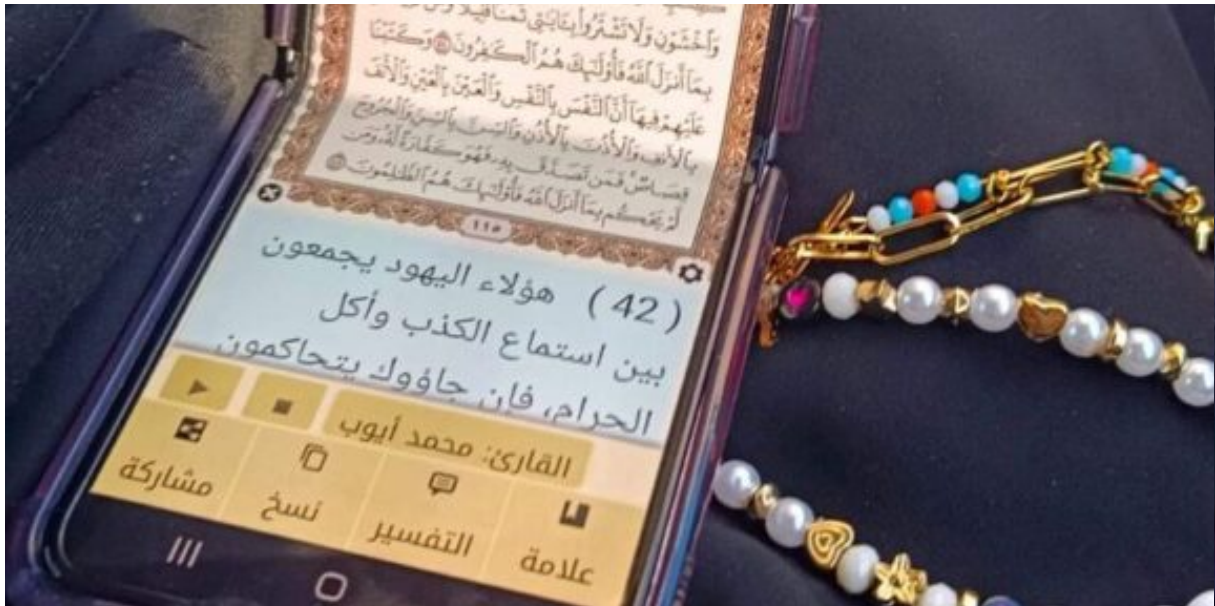 وَٱخْشَوْنِ وَلَا تَشْتَرُوا۟ بِـَٔايَـٰتِى ثَمَنًا قَلِيلًا وَمَن
بِمَآ أَنزَلَ ٱللَّهُ فَأُو۟لَـٰٓئِكَ هُمُ ٱلْكَـٰفِرُونَ ٤٤ وَكَتَبْنَا
عَلَيْهِمْ فِيهَآ أَنَّ ٱلنَّفْسَ بِٱلنَّفْسِ وَٱلْعَيْنَ بِٱلْعَيْنِ وَٱلْأَنفَ
بِٱلْأَنفِ وَٱلْأُذُنَ بِٱلْأُذُنِ وَٱلسِّنَّ بِٱلسِّنِّ وَٱلْجُرُوحَ
قِصَاصٌ فَمَن تَصَدَّقَ بِهِۦ فَهُوَ كَفَّارَةٌ لَّهُۥ وَمَن
لَّمْ يَحْكُم بِمَآ أَنزَلَ ٱللَّهُ فَأُو۟لَـٰٓئِكَ هُمُ ٱلظَّـٰلِمُونَ ٤٥
١١٥
(42) هؤلاء اليهود يجمعون
بين استماع الكذب وأكل
الحرام، فإن جاؤوك يتحاكمون
القارئ: محمد أيوب
علامة
التفسير
نسخ
مشاركة